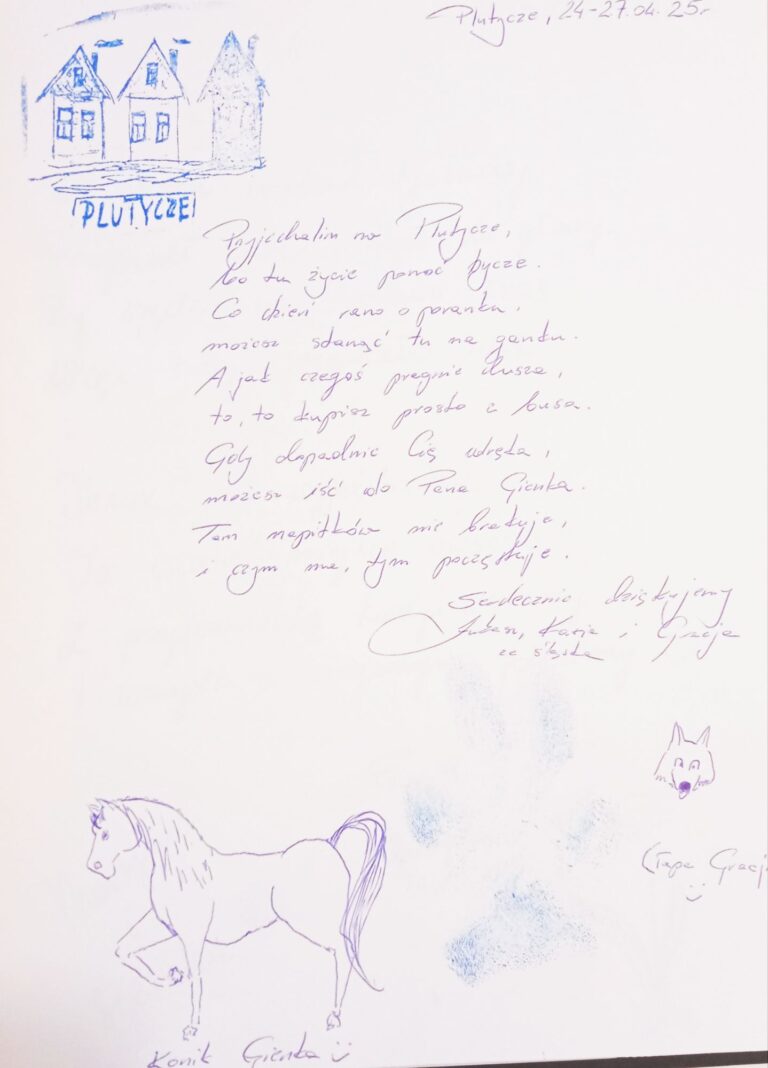 Plutycze, 24-27.04.25r
PLUTYCZE
Przyjechalim na Plutycze,
bo tu życie ponoć bycze.
Co dzień rano o poranku,
możesz stanąć tu na ganku.
A jak czegoś pragnie dusza,
to, to kupisz prosto z busa.
Gdy dopadnie Cię udręka,
możesz iść do Pana Gienka.
Tam napitków nie brakuje,
i czym ma, tym poczęstuje.
Serdecznie dziękujemy
Kasia i Gracja
ze śląska
(Łapa Gracji
Konik Gienka